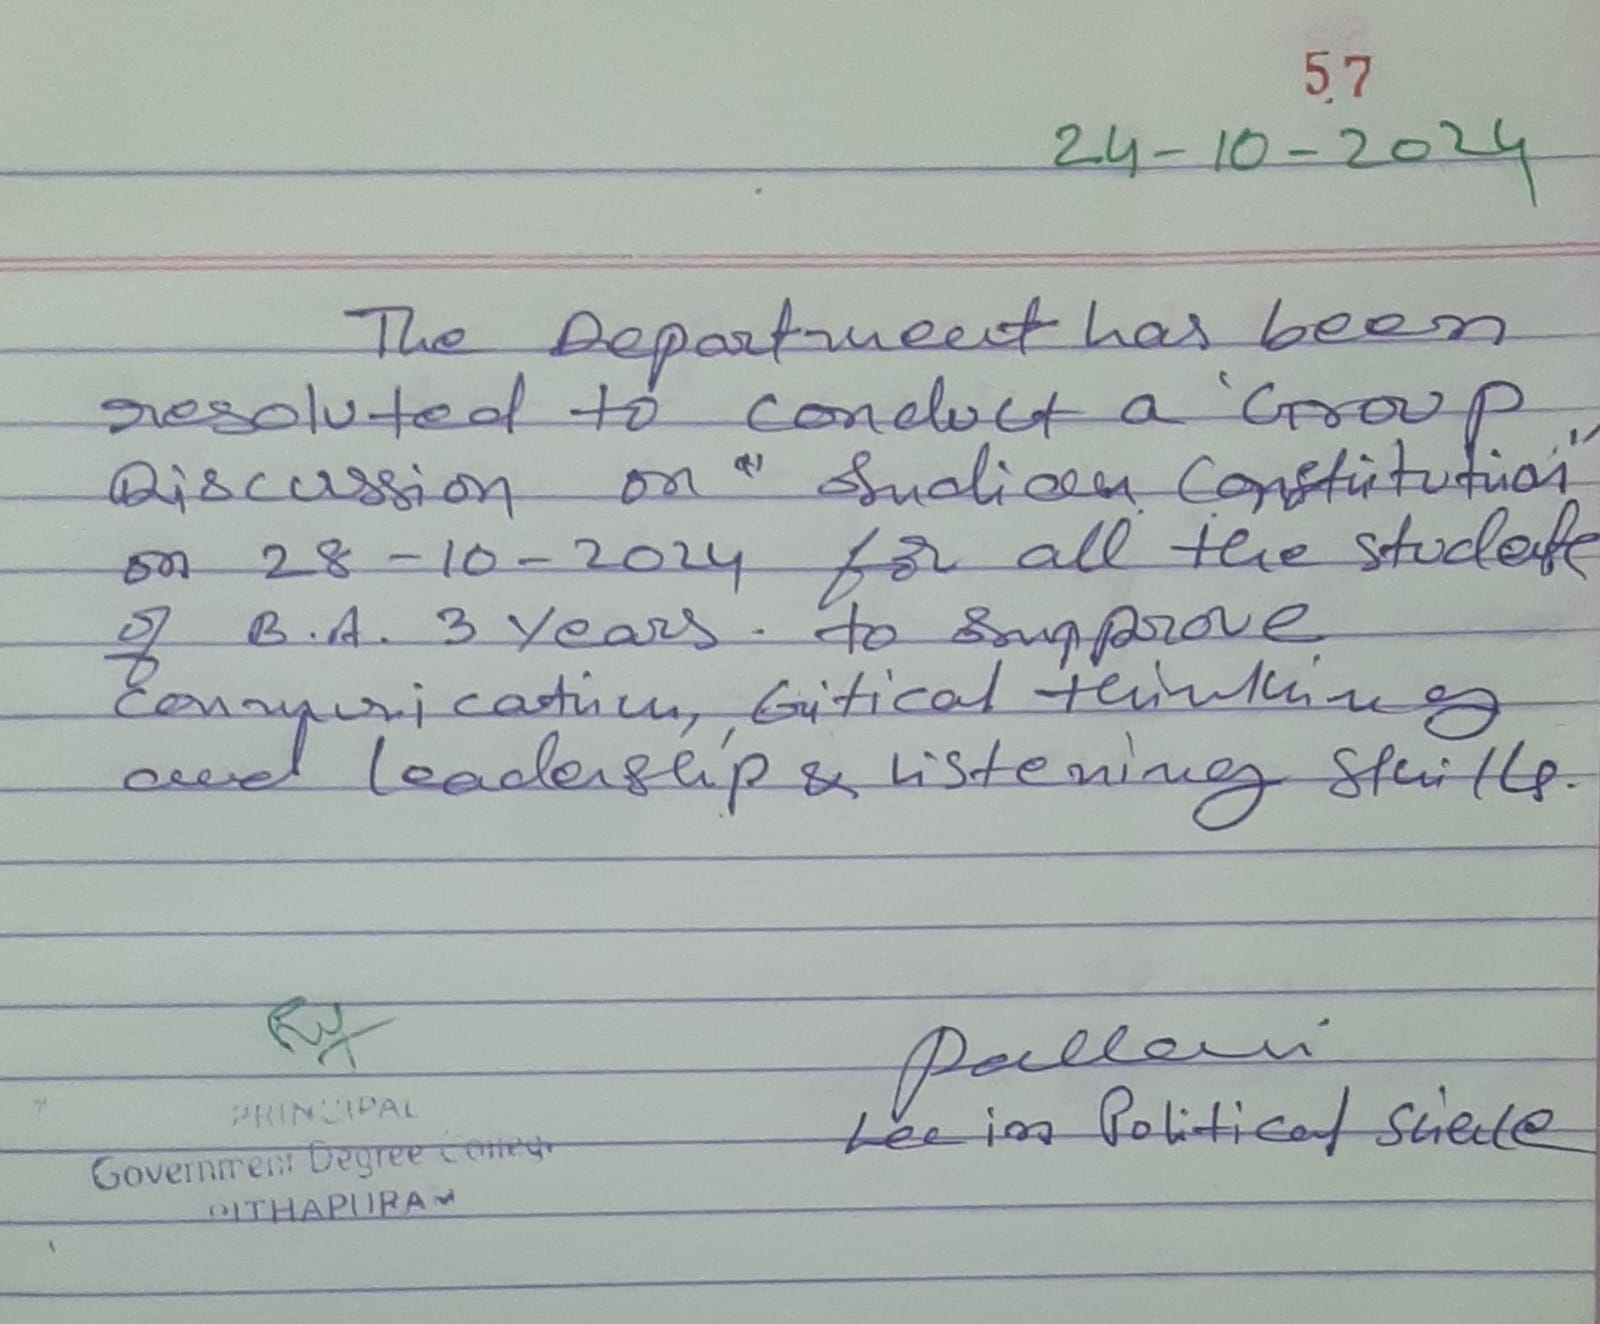 57
24-10-2024
The Department has been
resoluted to conduct a 'Group
Discussion on " Indian Constitution"
on 28-10-2024 for all the students
of B.A. 3 years. to Improve
Communication, Critical thinking
and leadership & Listening Skills.
Pallavi
Lec in Political Science
PRINCIPAL
Government Degree College
PITHAPURAM